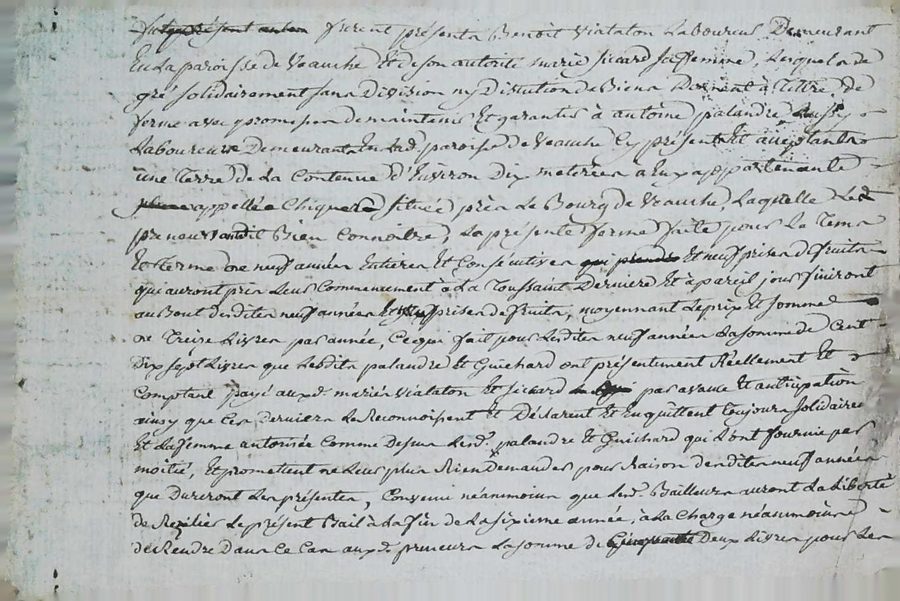 furent présents Benoit Viataton Laboureur Demeurant
En La paroisse de Veauche Et de son autorité marie sicard sa femme, Lesquels de
gré solidairement sans Division ny Distution de Biens Donnent à Tittre de
ferme avec promesse de maintenir Et garantir à antoine palandre aussy
Laboureur Demeurants En Lad. paroisse de Veauche Cy présents Et acceptants
une Terre de La Contenue d'Environ Dix meterées a Eux appartenante
appellée située près Le Bourg de Veauche, Laquelle Led.
preneur Bien Connoitre, La présente ferme faite pour Le Tems
Et terme de neuf années Entieres Et Consécutives qui prendre Et neuf prises de fruits
qui auront pris Leur Commencement a La Toussaint Derniere Et à pareil jour finiront
au Bout desdites neuf années Et prises de fruits, moyennant Le prix Et somme
de Treize Livres par année, Ce qui fait pour Lesdites neuf années La somme de Cent
Dix sept Livres que Lesdits palandre Et Guichard ont présentement Réellement Et
Comptant payé auxd. mariés Viataton Et sicard par avance Et anticipation
ainsy que Ces Derniers Le Reconnoissent Et Déclarent Et En quittent Toujours solidaires
Et La femme autorisée Comme Dessus Lesd. palandre Et Guichard qui L'ont fournie par
moitié, Et promettent ne Leur plus Rien Demander pour Raison desdites neuf années
que Dureront Les présentes, Convenu néanmoins que Lesd. Bailleurs auront La Liberté
de Resilier Le présent Bail à La fin de La sixieme année, à La Charge néanmoins
de Rendre Dans Ce Cas auxd. preneurs La somme de Cinquante Deux Livres pour Les